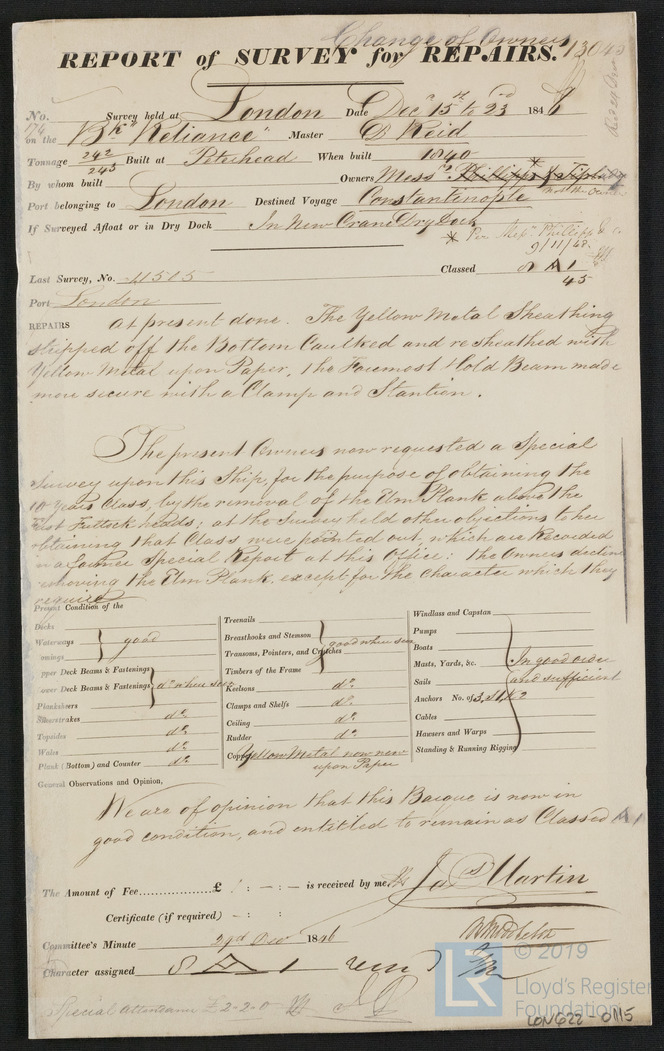 Change of Owners
REPORT of SURVEY for REPAIRS. 13045
No. 174 Survey held at London Date Decr 15th to 23rd 1848
on the Bk "Reliance" Master D Reid
Tonnage 242/243 Built at Peterhead When built 1840
By whom built Owners Messrs Phillipps & Tiplady *
not the Owners
Port belonging to London Destined Voyage Constantinople
If Surveyed Afloat or in Dry Dock In New Crane Dry Dock
* Per Phillipps & Co
9/11/48.
Last Survey, No. 11515 Classed A 1
45
Port London
REPAIRS at present done. The Yellow Metal Sheathing
stripped off the Bottom Caulked and resheathed with
Yellow Metal upon Paper, the Foremost Hold Beam made
more secure with a Clamp and Stantion.
The present Owners now requested a Special
Survey upon this Ship, for the purpose of obtaining the
10 Years Class, by the removal of the Elm Plank above the
First Futtock heads; at the Survey held other objections to her
obtaining that Class were pointed out, which are Recorded
in a former Special Report at this Office: the Owners decline
removing the Elm Plank, except for the Character which they
require
Present Condition of the
Decks
Waterways } good
Comings
Upper Deck Beams & Fastenings
Lower Deck Beams & Fastenings } do when seen
Planksheers
Sheerstrakes do
Topsides do
Wales do
Plank (Bottom) and Counter do
Treenails
Breasthooks and Stemson } good when seen
Transoms, Pointers, and Crutches
Timbers of the Frame
Keelsons do
Clamps and Shelfs do
Ceiling do
Rudder do
Copper Yellow Metal now new
upon Paper
Windlass and Capstan
Pumps
Boats
Masts, Yards, &c. } In good order
Sails and sufficient
Anchors No. of 3, S1, K2
Cables
Hawsers and Warps
Standing & Running Rigging
General Observations and Opinion,
We are of opinion that this Barque is now in
good condition, and entitled to remain as Classed A 1
The Amount of Fee............... £ : - : - is received by me Jas Martin
Certificate (if required) - : :
Committee's Minute 29th Decr 1846
Character assigned 8 A 1
Special attendance £ 2-2-0
LR © 2019
Lloyd's Register
Foundation
LON622-0115